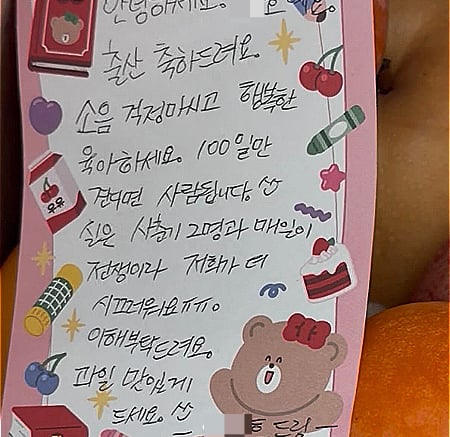 안녕하세요.
출산 축하드려요.
소음 걱정마시고 행복한
육아하세요. 100일만
견디면 사람됩니다. ^^
실은 사춘기 2명과 매일이
전쟁이라 저희가 더
시끄러워요ㅠㅠ.
이해부탁드려요.
과일 맛있게
드세요. ^^
호 드림 ㅡ
우유